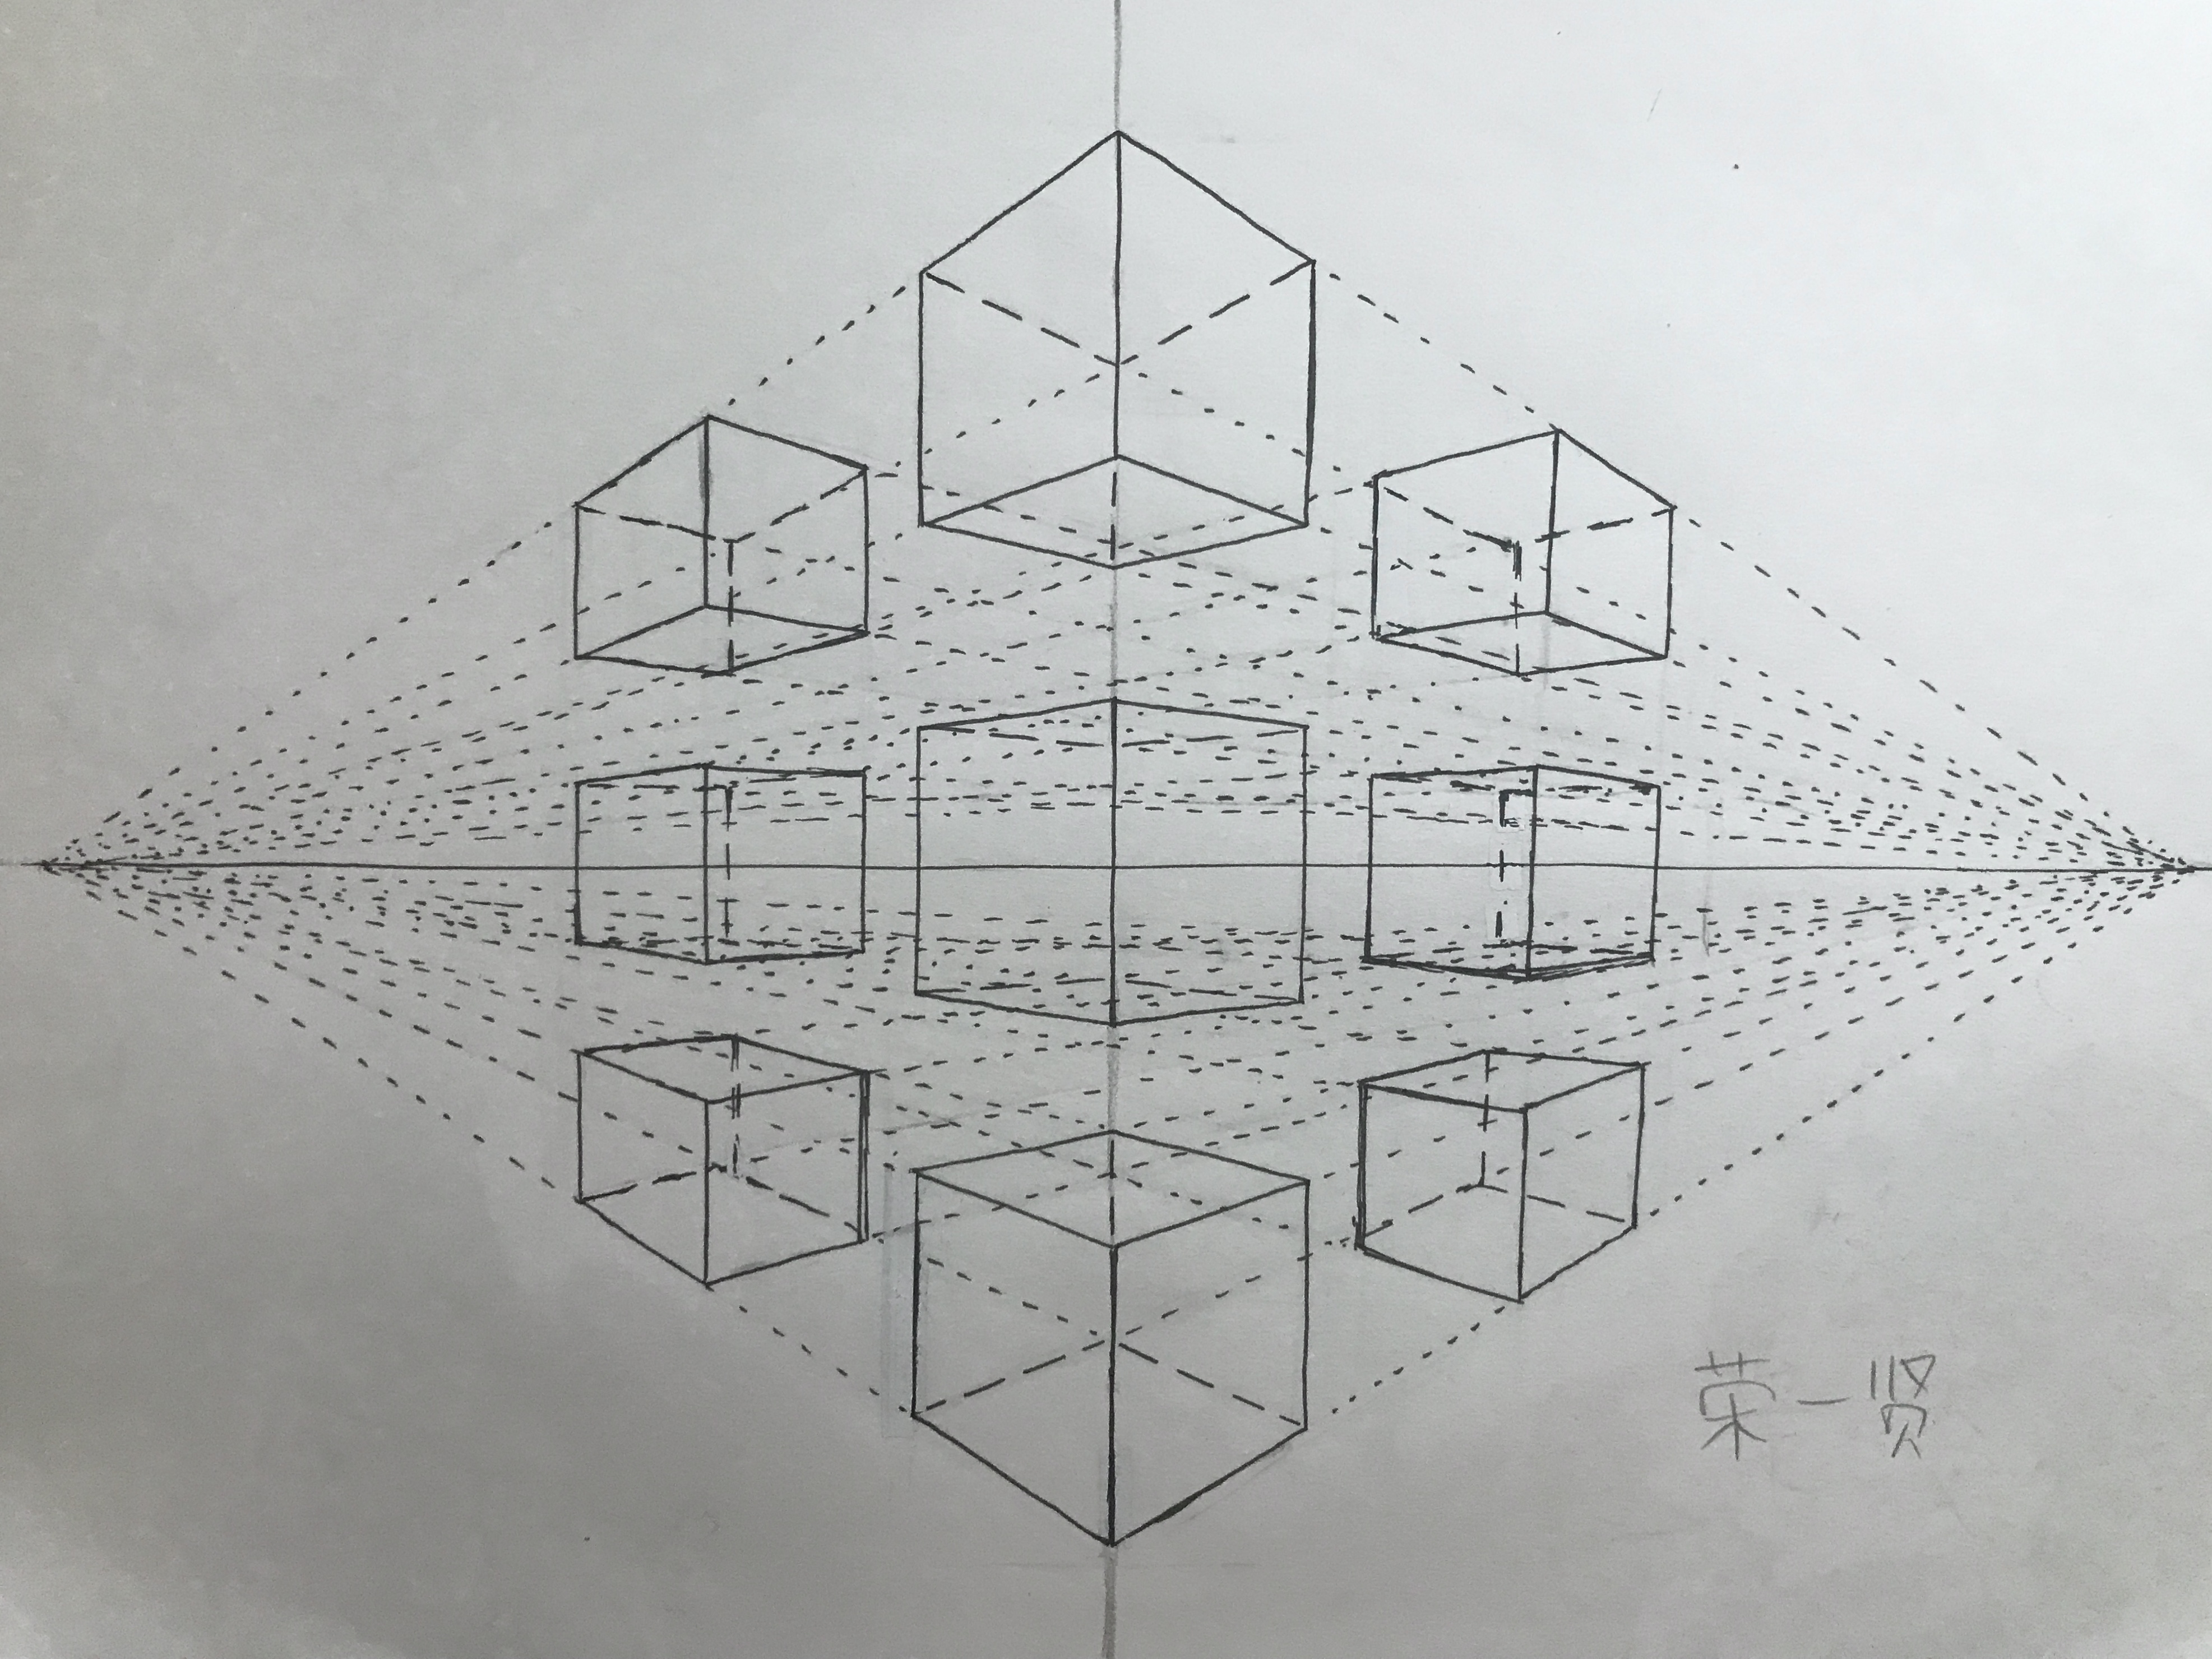 荣一贤